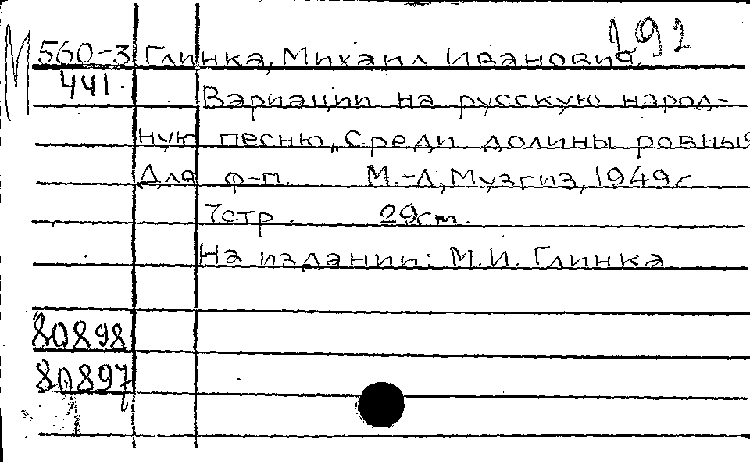 192
М 560-3 Глинка, Михаил Иванович.
441.
Вариации на русскую народ-
ную песню „Среди долины ровныя
Для ф-п. М.-Л, Музгиз, 1949г
7стр. 29см.
На издании: М.И. Глинка
80898
80897